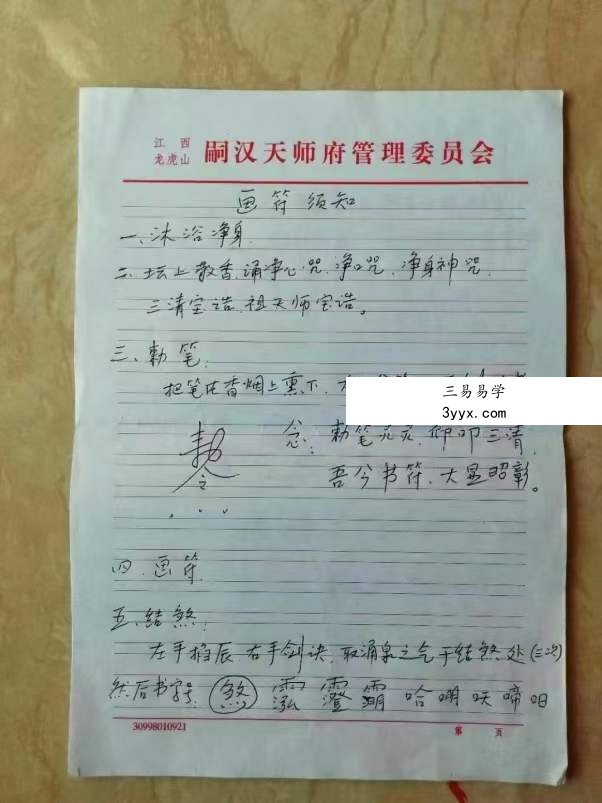 江西
龙虎山
嗣汉天师府管理委员会
画符须知
一、沐浴净身
二、坛上散香、诵净心咒、净口咒、净身神咒、
三清宝诰、祖天师宝诰。
三、勅笔:
把笔在香烟上熏下,
三易易学
3yyx.com
勅令
念:勅笔灵灵,仰叩三清,
吾今书符,大显昭彰。
四、画符
五、结煞:
左手掐辰、右手剑诀、取涌泉之气于结煞处(三次)
然后书字号 煞
30998010921
第 页